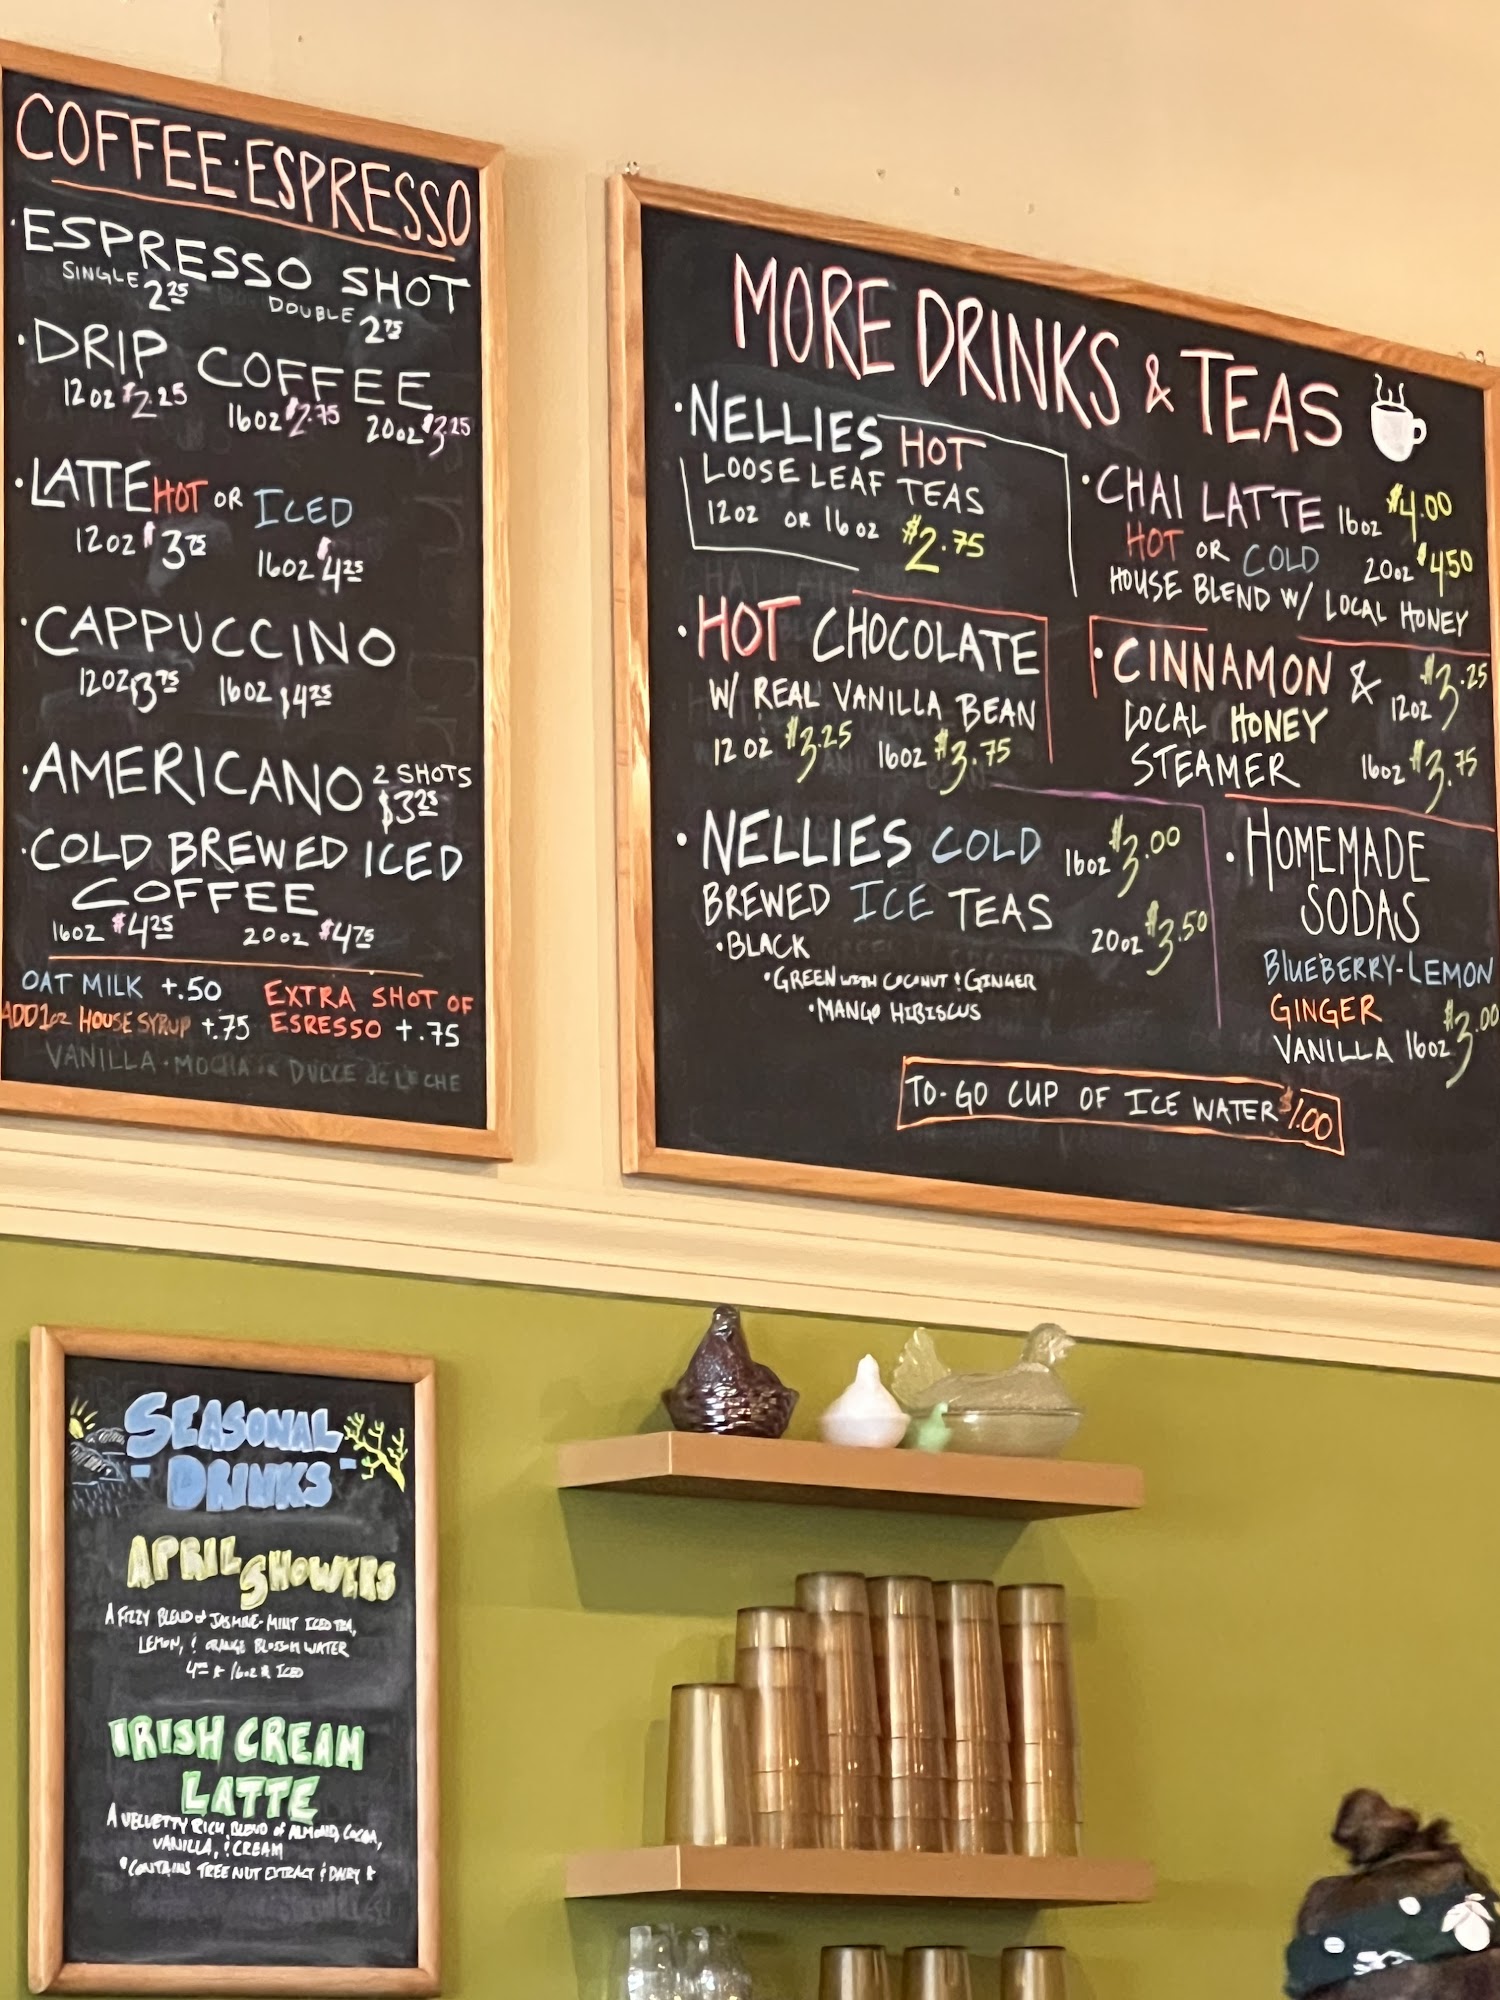 COFFEE·ESPRESSO
·ESPRESSO SHOT
SINGLE 2 25 DOUBLE 2 75
·DRIP COFFEE
12oz $2.25 16oz $2.75 20oz $3.25
·LATTE HOT OR ICED
12oz $3 75 16oz $4 25
·CAPPUCCINO
12oz $3 75 16oz $4 25
·AMERICANO 2 SHOTS
$3 25
·COLD BREWED ICED
COFFEE
16oz $4 25 20oz $4 75
OAT MILK +.50
ADD 1oz HOUSE SYRUP +.75
EXTRA SHOT OF
ESRESSO +.75
VANILLA·MOCHA OR DULCE de LECHE
MORE DRINKS & TEAS
·NELLIES HOT
LOOSE LEAF TEAS
12oz OR 16oz $2.75
·CHAI LATTE 16oz $4.00
HOT OR COLD 20oz $4.50
HOUSE BLEND W/ LOCAL HONEY
·HOT CHOCOLATE
W/ REAL VANILLA BEAN
12oz $3.25 16oz $3.75
·CINNAMON & 12oz $3.25
LOCAL HONEY
STEAMER 16oz $3.75
·NELLIES COLD 16oz $3.00
BREWED ICE TEAS 20oz $3.50
·BLACK
·GREEN WITH COCONUT & GINGER
·MANGO HIBISCUS
·HOMEMADE
SODAS
BLUEBERRY-LEMON
GINGER
VANILLA 16oz $3.00
TO-GO CUP OF ICE WATER $1.00
SEASONAL
-DRINKS-
APRIL SHOWERS
A FIZZY BLEND of JASMINE-MINT ICED TEA,
LEMON, & ORANGE BLOSSOM WATER
16oz ICED
IRISH CREAM
LATTE
A VELVETTY RICH BLEND of ALMOND, COCOA,
VANILLA, & CREAM
*CONTAINS TREE NUT EXTRACT & DAIRY*